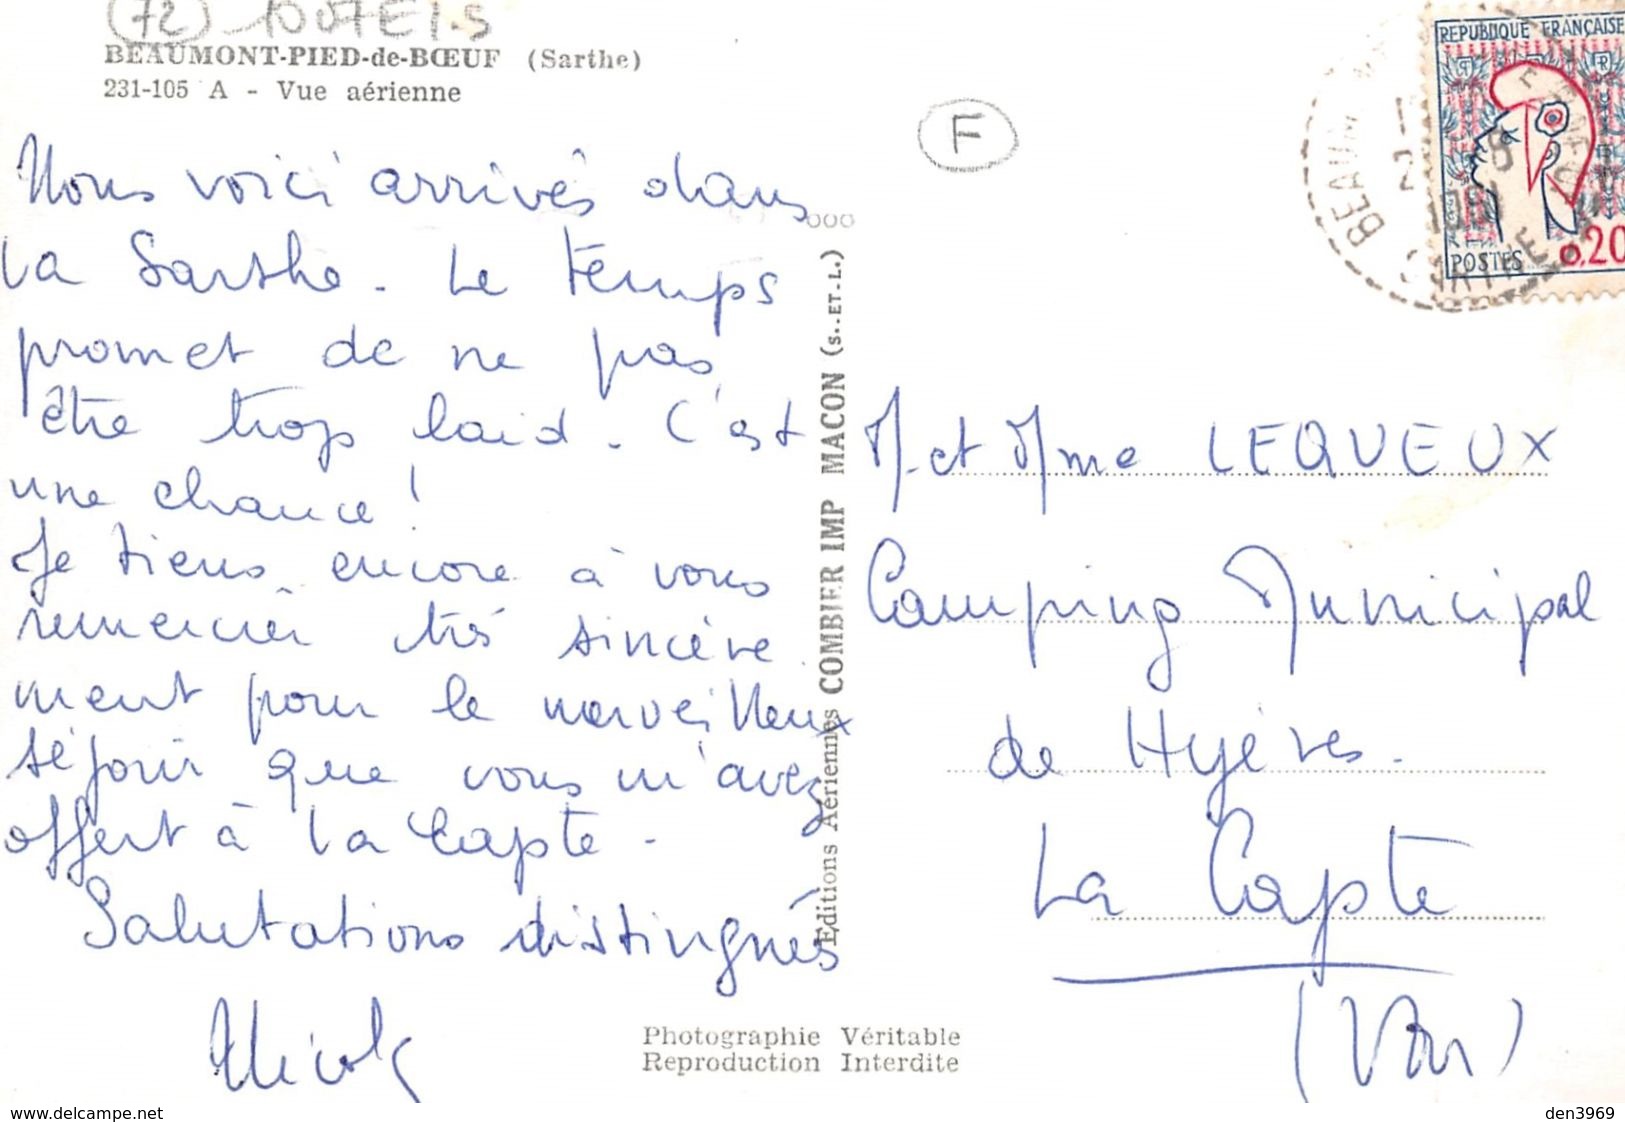 (72) 100TEI.S
BEAUMONT-PIED-de-BŒUF (Sarthe)
231-105 A - Vue aérienne
Nous voici arrivés dans
la Sarthe. Le temps
promet de ne pas
être trop laid. C'est
une chance !
Je tiens encore à vous
remercier très sincère
ment pour le merveilleux
séjour que vous m'avez
offert à la Capte.
Salutations distingués
Nicole
Editions Aériennes COMBIER IMP MACON (S.-ET-L.)
Photographie Véritable
Reproduction Interdite
F
REPUBLIQUE FRANÇAISE
RF
POSTES 0,20
M. et Mme LEQUEUX
Camping Municipal
de Hyères.
La Capte
(Var)
www.delcampe.net
den3969